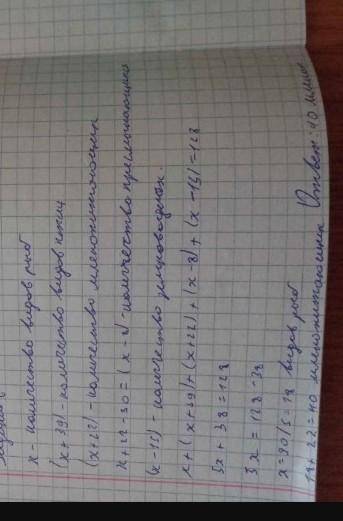 x - количество видов рыб
(x+39) - количество видов птиц
(x+22) - количество млекопитающих
x+22-30=(x-8) - количество пресмыкающихся
(x-15) - количество земноводных.
x+(x+39)+(x+22)+(x-8)+(x-15)=128
5x+38=128
5x=128-38
x=90/5=18 видов рыб
18+22=40 млекопитающих Ответ: 40 млекоп